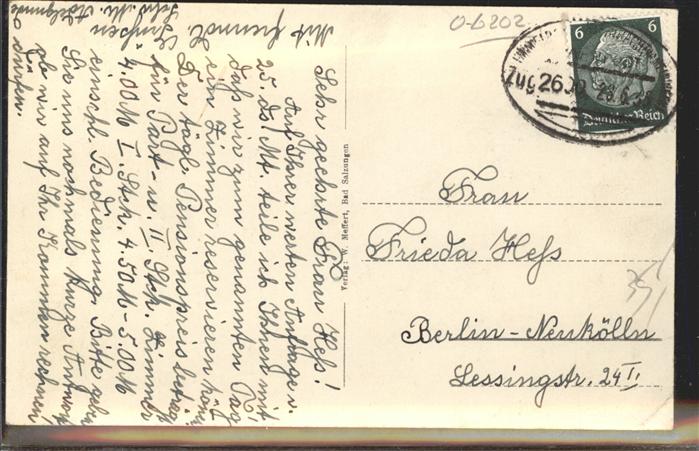 Sehr geehrte Frau Heß!
Auf Ihrer werten Anfrage v.
25. ds. Mt. teile ich Ihnen mit,
daß wir zum genannten Tag
ein Zimmer reservieren kön
Der tägl. Pensionspreis beträg
für Part- u. II Stck. Zimmer
4.00 M I. Stck. 4.50 M - 5.00 M
einschl. Bedienung. Bitte geben
Sie uns nochmals kurze Antwort
ob wir auf Ihr Kommen rechnen
dürfen.
Mit freundl. Grüßen
Verlag: W. Meffert, Bad Salzungen
0-6202
6 6
Deutsches Reich
Zug 2600
Frau
Frieda Heß
Berlin-Neukölln
Lessingstr. 24 II